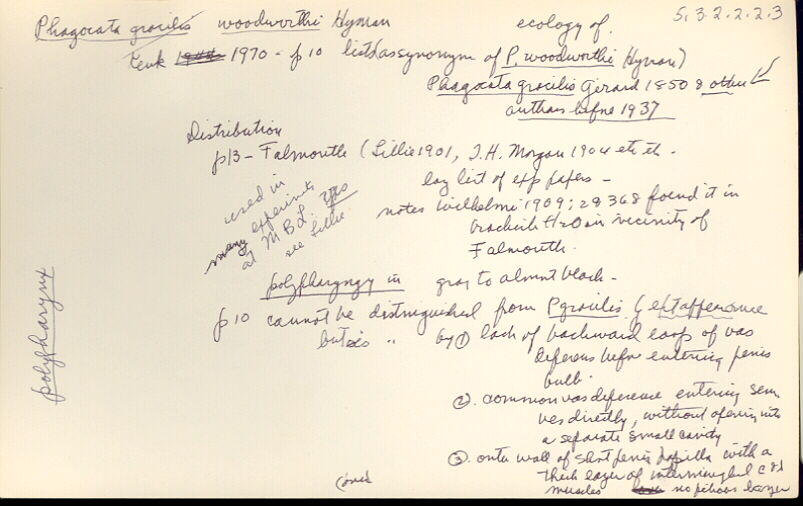 5.3.2.2.2.3
Phagocata gracilis woodworthi Hyman ecology of.
Kenk 1970 - p 10 lists (as synonym of P. woodworthi Hyman)
Phagocata gracilis Girard 1850 & other
authors before 1937
Distribution
p13 - Falmouth (Lillie 1901, T.H. Morgan 1904 etc etc -
long list of exp papers -
notes Wilhelmi 1909: 29 368 found it in
brackish H2O in vicinity of
Falmouth.
used in
many experiments
at MBL. yes
see Lillie
polypharyngy in gray to almost black -
p 10 cannot be distinguished from P gracilis by ext appearance
but is " by ① lack of backward loops of vas
deferens before entering penis
bulb.
②. common vas deference entering sem
ves directly, without opening into
a separate small cavity
③. outer wall of short penis papilla with a
thick layer of intermingled c & l
muscles no layer
(cont
polypharynx